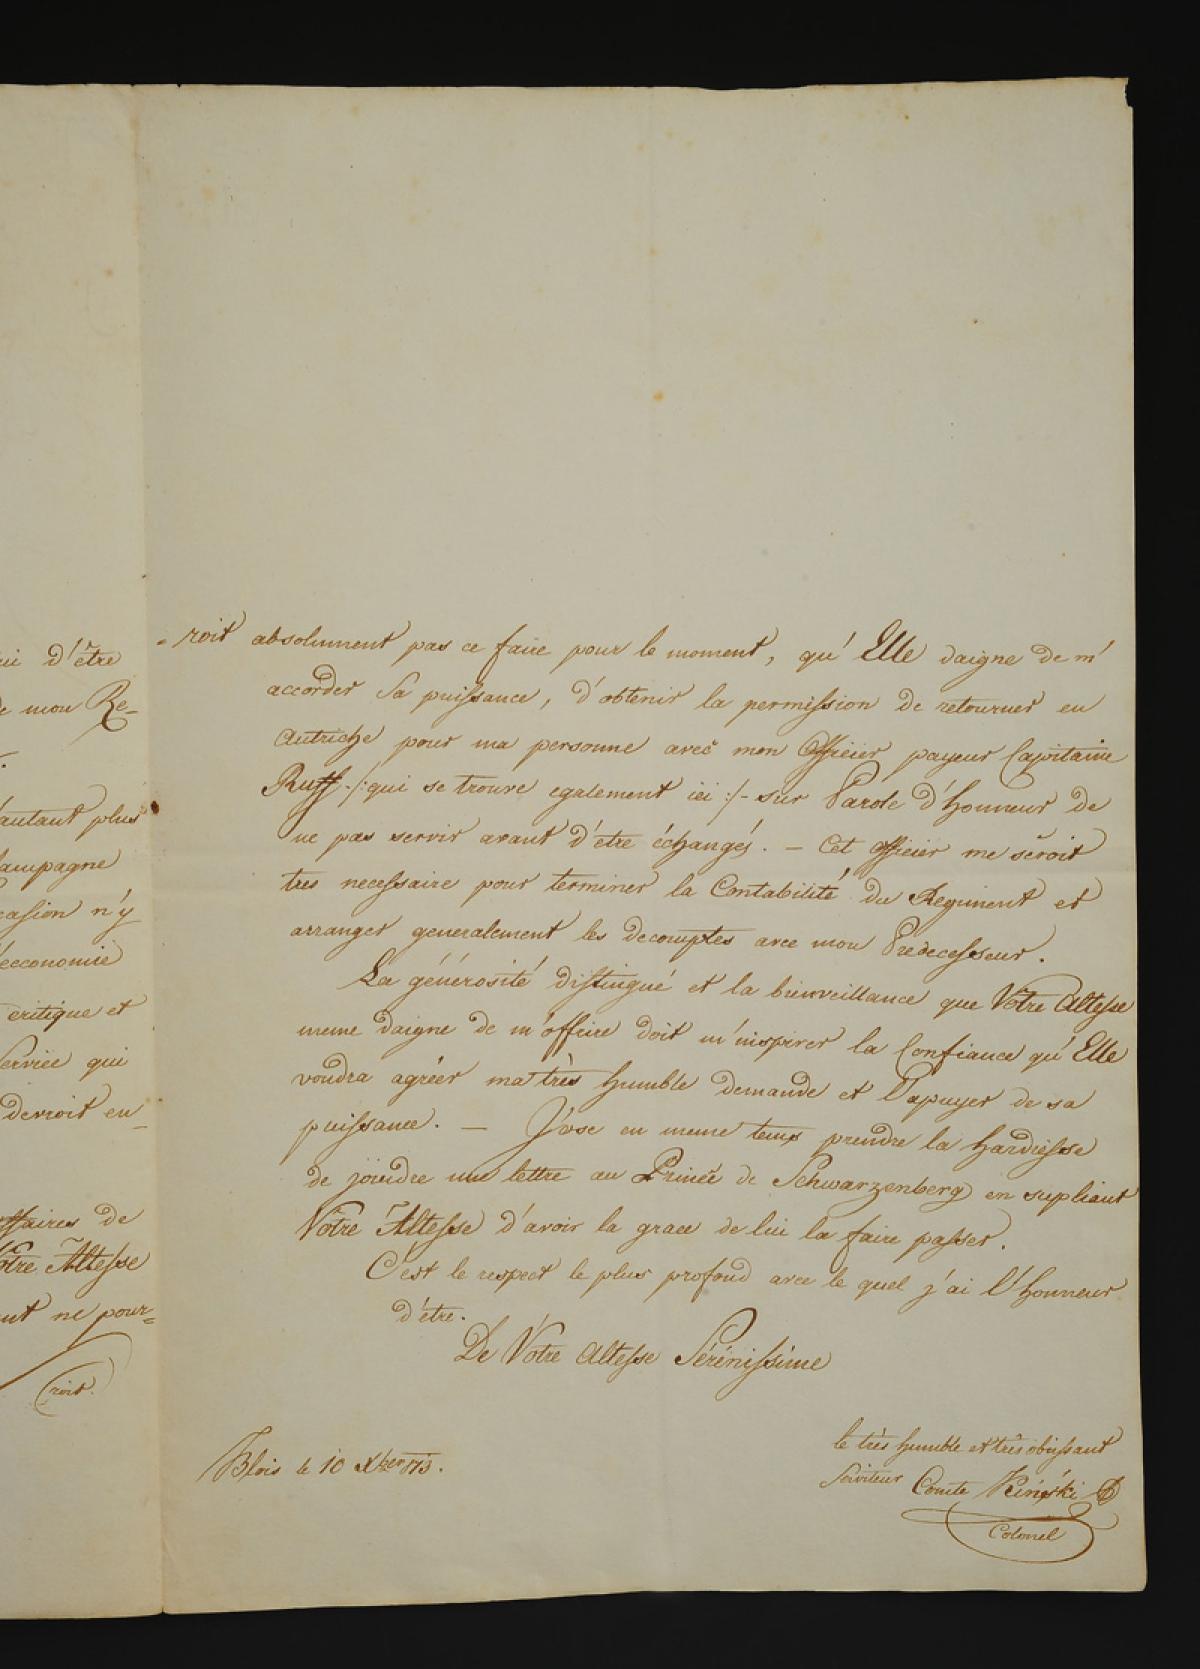 ui d'être
e mon Re-
autant plus
ampagne
casion n'y
économie
critique et
Service qui
devroit en-
affaires de
otre Altesse
nt ne pour-
roit.
- roit absolument pas ce faire pour le moment, qu' Elle daigne de m'
accorder Sa puissance, d'obtenir la permission de retourner en
Autriche pour ma personne avec mon Officier payeur Capitaine
Ruff /: qui se trouve egalement ici :/ - sur Parole d'honneur de
ne pas servir avant d'etre échangés. — Cet officier me séroit
tres necessaire pour terminer la Contabilité du Regiment et
arranger generalement les decomptes avec mon Predecesseur.
La générosité distingué et la bienveillance que Votre Altesse
meme daigne de m'offrire doit m'inspirer la Confiance qu' Elle
voudra agréer ma très humble demande et l'apuyer de sa
puissance. — J'ose en meme tems prendre la hardiesse
de joindre une lettre au Prince de Schwarzenberg en supliant
Votre Altesse d'avoir la grace de lui la faire passer.
C'est le respect le plus profond avec le quel j'ai l'honneur
d'étre.
De Votre Altesse Sérénissime
le très humble et très obéissant
Serviteur Comte Kinski
Colonel
Blois le 10 Xber